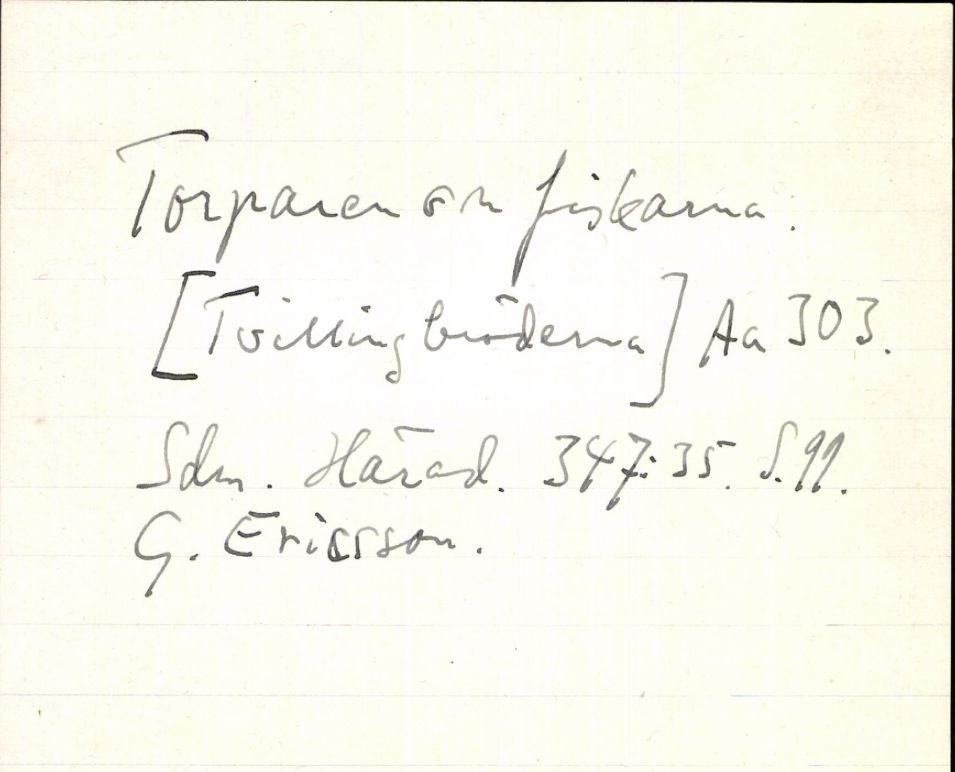 Torparen o n fiskarna.
[Tvillingbröderna] Aa 303.
Sdm. Härad. 347:35. S.99.
G. Ericsson.